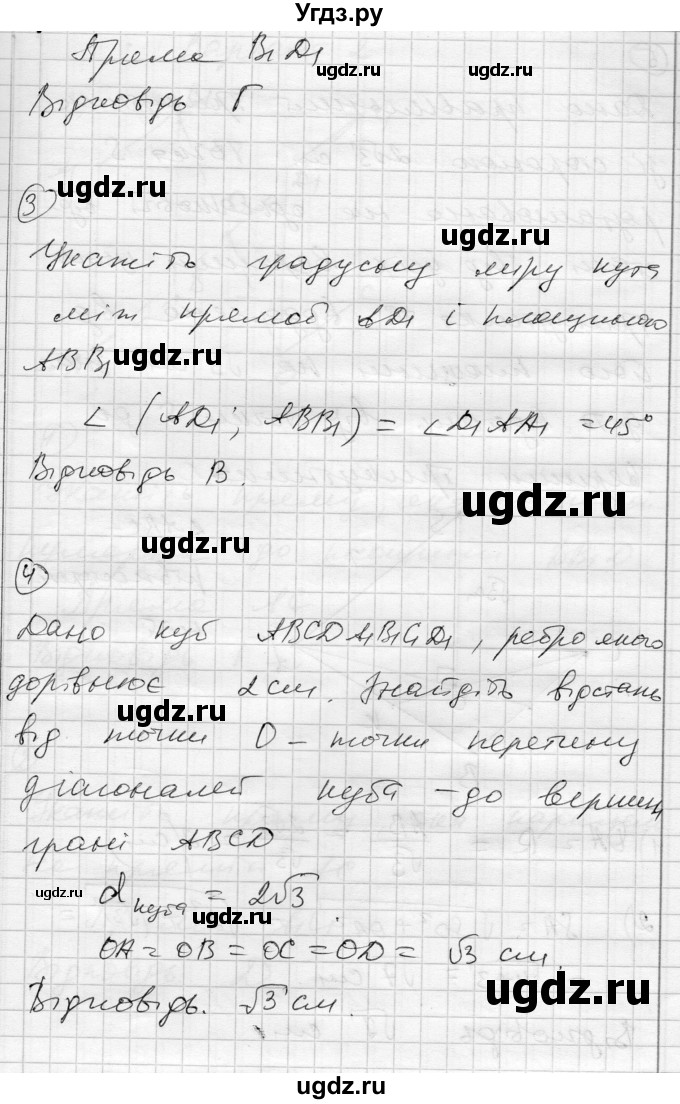 Угдз.ру
Пряма B₁D₁
ugdz.ru
Відповідь Г
ugdz.ru
3
ugdz.ru
Укажіть градусну міру кута
між прямой AD₁ і площиною
ABB₁
ugdz.ru
∠ (AD₁; ABB₁) = ∠D₁AA₁ = 45°
Відповідь В.
ugdz.ru
ugdz.ru
4
Дано куб ABCDA₁B₁C₁D₁, ребро якого
дорівнює 2 см. Знайдіть відстань
ugdz.ru
від точки O – точки перетину
діагоналей куба – до вершин
грані ABCD
ugdz.ru
d куба = 2√3
ugdz.ru
OA = OB = OC = OD = √3 см.
ugdz.ru
Відповідь. √3 см.
ugdz.ru